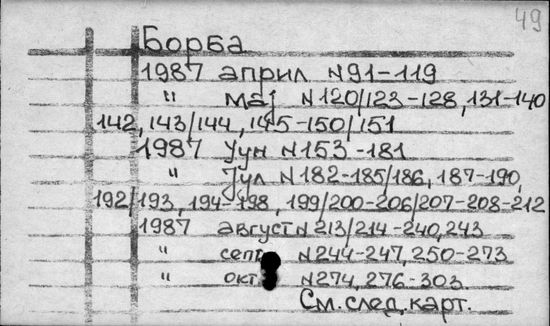 49
Борба
1987 април N91-119
" мај N120/123-128, 131-140
142, 143/144, 145-150/151
1987 Јун N153-181
" Јул N182-185/186, 187-190,
192/193, 194-198, 199/200-206/207-208-212
1987 август N213/214-240, 243
" септ. N244-247, 250-273
" окт. N274, 276-303
См. след. карт.